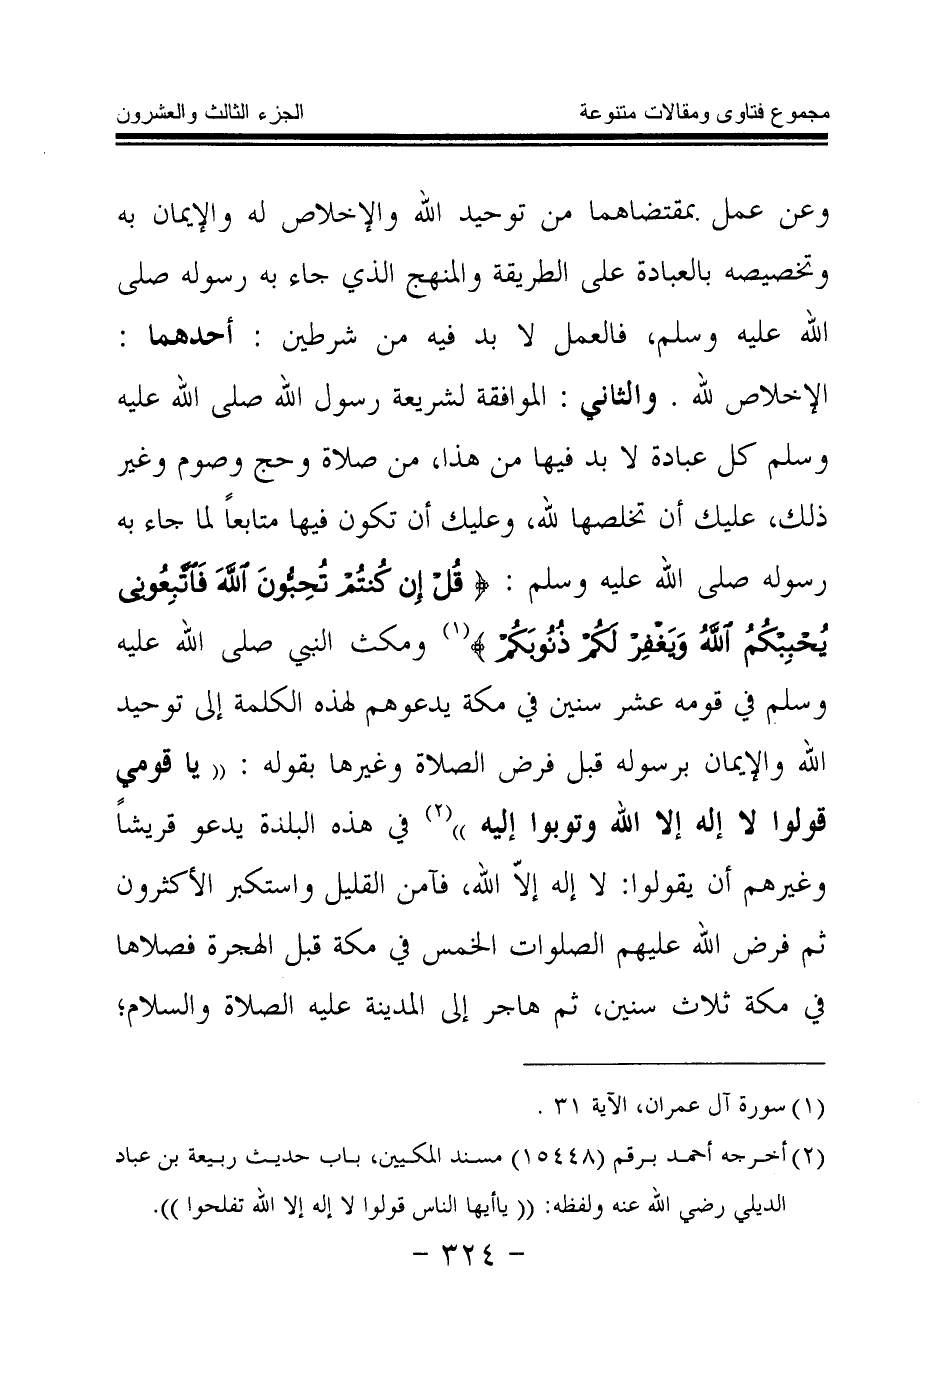 مجموع فتاوى ومقالات متنوعة الجزء الثالث والعشرون
وعن عمل بمقتضاهما من توحيد الله والإخلاص له والإيمان به
وتخصيصه بالعبادة على الطريقة والمنهج الذي جاء به رسوله صلى
الله عليه وسلم، فالعمل لا بد فيه من شرطين : أحدهما :
الإخلاص لله . والثاني : الموافقة لشريعة رسول الله صلى الله عليه
وسلم كل عبادة لا بد فيها من هذا، من صلاة وحج وصوم وغير
ذلك، عليك أن تخلصها لله، وعليك أن تكون فيها متابعاً لما جاء به
رسوله صلى الله عليه وسلم : ﴿ قُلْ إِن كُنتُمْ تُحِبُّونَ ٱللَّهَ فَٱتَّبِعُونِى
يُحْبِبْكُمُ ٱللَّهُ وَيَغْفِرْ لَكُمْ ذُنُوبَكُمْ ﴾(١) ومكث النبي صلى الله عليه
وسلم في قومه عشر سنين في مكة يدعوهم لهذه الكلمة إلى توحيد
الله والإيمان برسوله قبل فرض الصلاة وغيرها بقوله : (( يا قومي
قولوا لا إله إلا الله وتوبوا إليه ))(٢) في هذه البلدة يدعو قريشاً
وغيرهم أن يقولوا: لا إله إلاّ الله، فآمن القليل واستكبر الأكثرون
ثم فرض الله عليهم الصلوات الخمس في مكة قبل الهجرة فصلاها
في مكة ثلاث سنين، ثم هاجر إلى المدينة عليه الصلاة والسلام؛
(١) سورة آل عمران، الآية ٣١ .
(٢) أخرجه أحمد برقم (١٥٤٤٨) مسند المكيين، باب حديث ربيعة بن عباد
الديلي رضي الله عنه ولفظه: (( ياأيها الناس قولوا لا إله إلا الله تفلحوا )).
- ٣٢٤ -